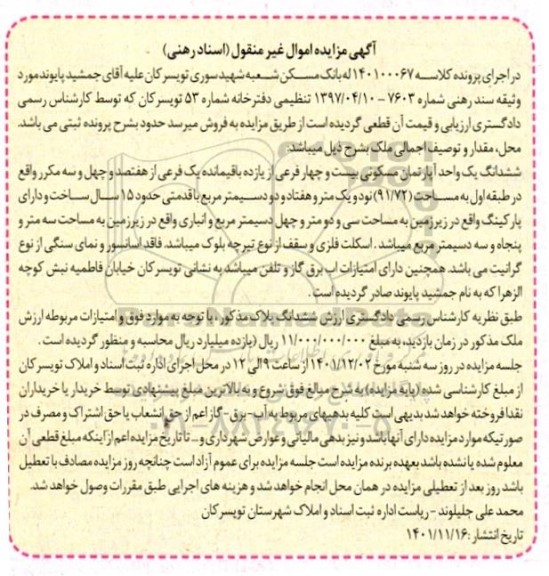 آگهی مزایده اموال غیر منقول (اسناد رهنی)
در اجرای پرونده کلاسه ۱۴۰۱۰۰۰۶۷ له بانک مسکن شعبه شهید سوری تویسرکان علیه آقای جمشید پایوند مورد
وثیقه سند رهنی شماره ۷۶۰۳ - ۱۳۹۷/۰۴/۱۰ تنظیمی دفترخانه شماره ۵۳ تویسرکان که توسط کارشناس رسمی
دادگستری ارزیابی و قیمت آن قطعی گردیده است از طریق مزایده به فروش میرسد حدود بشرح پرونده ثبتی می باشد.
محل، مقدار و توصیف اجمالی ملک بشرح ذیل میباشد:
ششدانگ یک واحد آپارتمان مسکونی بیست و چهار فرعی از یازده باقیمانده یک فرعی از هفتصد و چهل و سه مکرر واقع
در طبقه اول به مساحت (۹۱/۷۲) نود و یک متر و هفتاد و دو دسیمتر مربع باقدمتی حدود ۱۵ سال ساخت و دارای
پارکینگ واقع در زیرزمین به مساحت سی و دو متر و چهل دسیمتر مربع و انباری واقع در زیرزمین به مساحت سه متر و
پنجاه و سه دسیمتر مربع میباشد. اسکلت فلزی و سقف از نوع تیرچه بلوک میباشد. فاقد آسانسور و نمای سنگی از نوع
گرانیت می باشد. همچنین دارای امتیازات آب برق گاز و تلفن میباشد به نشانی تویسرکان خیابان فاطمیه نبش کوچه
الزهرا که به نام جمشید پایوند صادر گردیده است.
طبق نظریه کارشناس رسمی دادگستری ارزش ششدانگ پلاک مذکور، با توجه به موارد فوق و امتیازات مربوطه ارزش
ملک مذکور در زمان بازدید، به مبلغ ۱۱/۰۰۰/۰۰۰/۰۰۰ ریال (یازده میلیارد ریال محاسبه و منظور گردیده است.
جلسه مزایده در روز سه شنبه مورخ ۱۴۰۱/۱۲/۰۲ از ساعت ۹ الی ۱۲ در محل اجرای اداره ثبت اسناد و املاک تویسرکان
از مبلغ کارشناسی شده (پایه مزایده) به شرح مبالغ فوق شروع و به بالاترین مبلغ پیشنهادی توسط خریدار یا خریداران
نقدا فروخته خواهد شد بدیهی است کلیه بدهیهای مربوط به آب - برق - گاز اعم از حق انشعاب یا حق اشتراک و مصرف در
صورتیکه موارد مزایده دارای آنها باشد و نیز بدهی مالیاتی و عوارض شهرداری و ... تا تاریخ مزایده اعم از اینکه مبلغ قطعی آن
معلوم شده یا نشده باشد بعهده برنده مزایده است جلسه مزایده برای عموم آزاد است چنانچه روز مزایده مصادف با تعطیل
باشد روز بعد از تعطیلی مزایده در همان محل انجام خواهد شد و هزینه های اجرایی طبق مقررات وصول خواهد شد.
محمد علی جلیلوند - ریاست اداره ثبت اسناد و املاک شهرستان تویسرکان
تاریخ انتشار: ۱۴۰۱/۱۱/۱۶